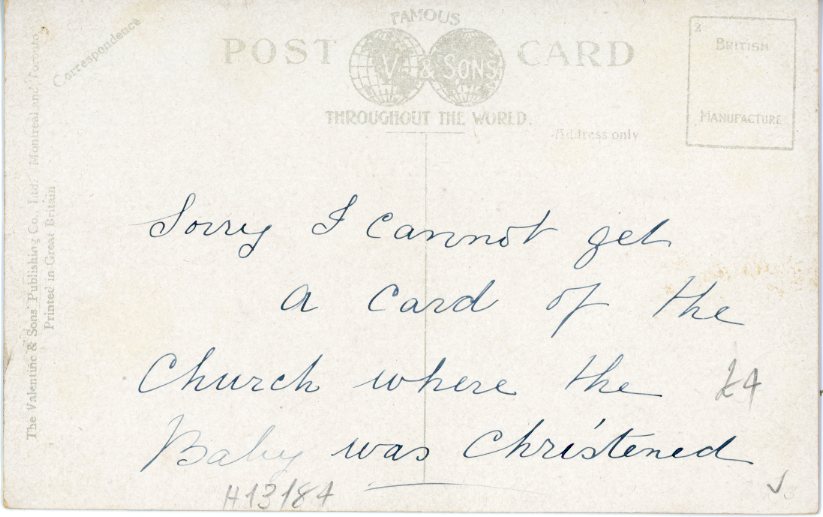 FAMOUS
POST CARD
V. & SONS
THROUGHOUT THE WORLD.
Correspondence
Address only
BRITISH
MANUFACTURE
The Valentine & Sons' Publishing Co., Ltd. Montreal and Toronto
Printed in Great Britain
Sorry I cannot get
a card of the
Church where the
Baby was Christened
H13184